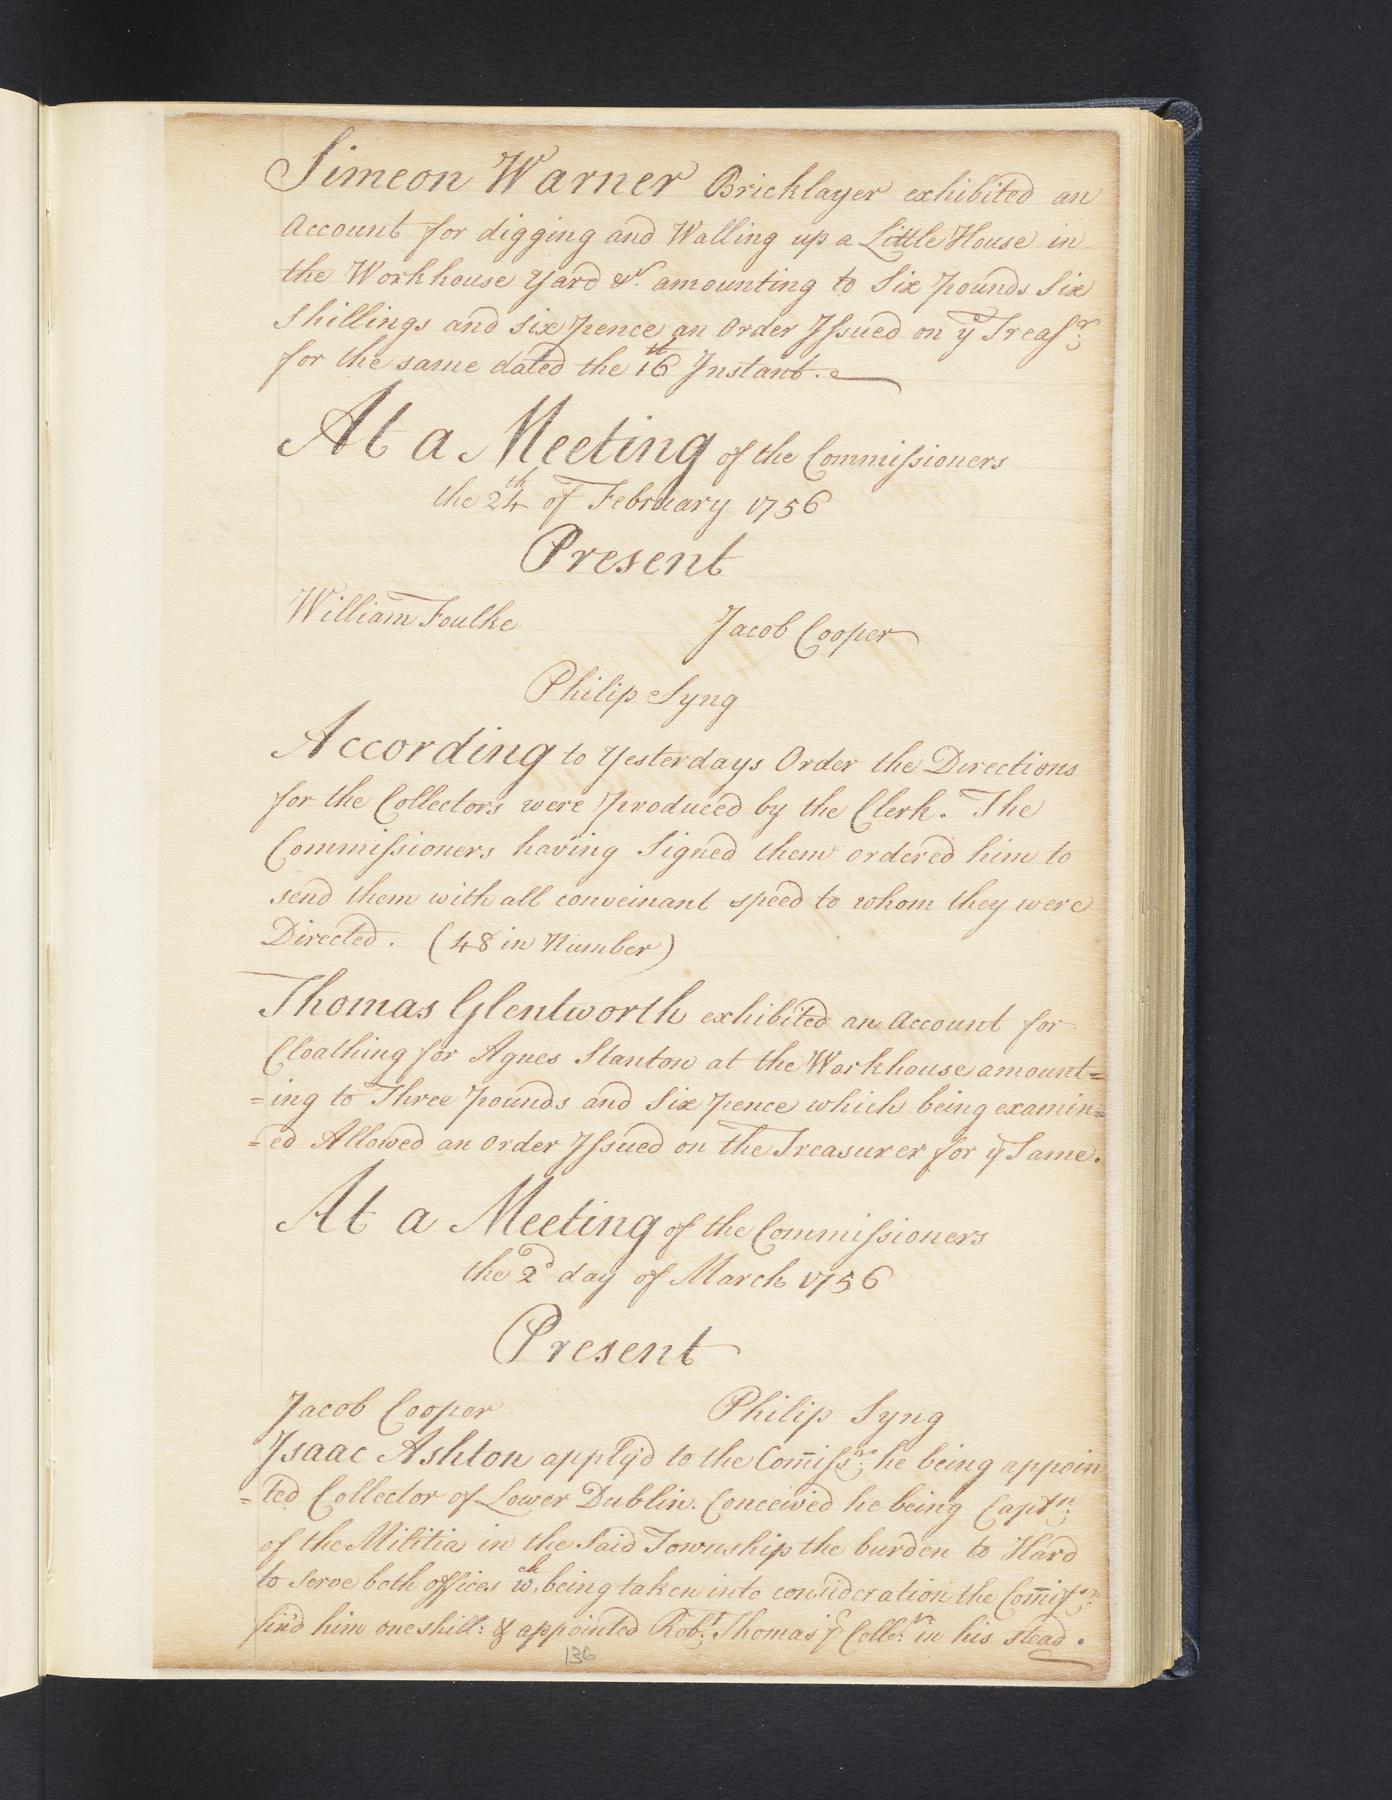 Simeon Warner Bricklayer exhibited an
Account for digging and Walling up a Little House in
the Workhouse Yard &c. amounting to Six pounds Six
Shillings and six pence an Order Issued on ye Treasr:
for the same dated the 16th Instant.
At a Meeting of the Commissioners
the 24th of February 1756
Present
William Foulke Jacob Cooper
Philip Syng
According to Yesterdays Order the Directions
for the Collectors were produced by the Clerk. The
Commissioners having Signed them ordered him to
send them with all conveinant speed to whom they were
Directed. (48 in Number)
Thomas Glentworth exhibited an Account for
Cloathing for Agnes Stanton at the Workhouse amount=
=ing to Three pounds and Six pence which being examin=
=ed Allowed an Order Issued on the Treasurer for ye Same.
At a Meeting of the Commissioners
the 2d day of March 1756
Present
Jacob Cooper Philip Syng
Isaac Ashton apply'd to the Com̄issrs: he being appoin
=ted Collector of Lower Dublin. Conceived he being Captn:
of the Militia in the Said Township the burden to Hard
to serve both offices wch. being taken into consideration the Com̄issrs:
fin'd him one shill: & appointed Robt: Thomas ye Collr: in his stead.
136